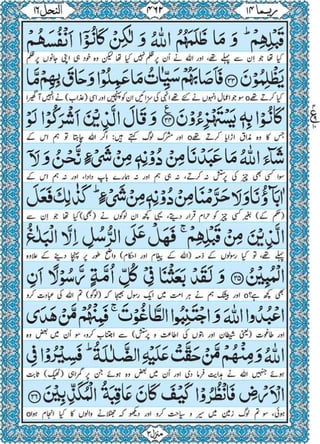 ربما ١٤ ٤٦٢ النحل ١٦
قَبْلِهِمْ ؕ وَ مَا ظَلَمَهُمُ اللّٰهُ وَ لٰكِنْ كَانُوْۤا اَنْفُسَهُمْ
کیا تھا جو ان سے پہلے تھے، اور اللہ نے اُن پر ظلم نہیں کیا تھا لیکن وہ خود ہی اپنی جانوں پر ظلم
یَظْلِمُوْنَ ﴿۳۳﴾ فَاَصَابَهُمْ سَیِّاٰتُ مَا عَمِلُوْا وَ حَاقَ بِهِمْ مَّا
کیا کرتے تھے o سو جو اعمال انہوں نے کئے تھے انہی کی سزائیں ان کو پہنچیں اور اسی (عذاب) نے انہیں آ گھیرا
كَانُوْا بِهٖ یَسْتَهْزِءُوْنَ ﴿۳۴﴾ وَ قَالَ الَّذِیْنَ اَشْرَكُوْا لَوْ
جس کا وہ مذاق اڑایا کرتے تھے o اور مشرک لوگ کہتے ہیں: اگر اللہ چاہتا تو ہم اس کے
شَآءَ اللّٰهُ مَا عَبَدْنَا مِنْ دُوْنِهٖ مِنْ شَیْءٍ نَّحْنُ وَ لَاۤ
سوا کسی بھی چیز کی پرستش نہ کرتے، نہ ہی ہم اور نہ ہمارے باپ دادا، اور نہ ہم اس کے
اٰبَآؤُنَا وَ لَا حَرَّمْنَا مِنْ دُوْنِهٖ مِنْ شَیْءٍ ؕ كَذٰلِكَ فَعَلَ
(حکم کے) بغیر کسی چیز کو حرام قرار دیتے، یہی کچھ ان لوگوں نے (بھی) کیا تھا جو اِن سے
الَّذِیْنَ مِنْ قَبْلِهِمْ ۚ فَهَلْ عَلَی الرُّسُلِ اِلَّا الْبَلٰغُ
پہلے تھے، تو کیا رسولوں کے ذمہ (اللہ کے پیغام اور احکام) واضح طور پر پہنچا دینے کے علاوہ
الْمُبِیْنُ ﴿۳۵﴾ وَ لَقَدْ بَعَثْنَا فِیْ كُلِّ اُمَّةٍ رَّسُوْلًا اَنِ
بھی کچھ ہے o اور بیشک ہم نے ہر امت میں ایک رسول بھیجا کہ (لوگو) تم اللہ کی عبادت کرو
اعْبُدُوا اللّٰهَ وَ اجْتَنِبُوا الطَّاغُوْتَ ۚ فَمِنْهُمْ مَّنْ هَدَی
اور طاغوت (یعنی شیطان اور بتوں کی اطاعت و پرستش) سے اجتناب کرو، سو اُن میں بعض وہ
اللّٰهُ وَ مِنْهُمْ مَّنْ حَقَّتْ عَلَیْهِ الضَّلٰلَةُ ؕ فَسِیْرُوْا فِی
ہوئے جنہیں اللہ نے ہدایت فرما دی اور اُن میں بعض وہ ہوئے جن پر گمراہی (ٹھیک) ثابت
الْاَرْضِ فَانْظُرُوْا كَیْفَ كَانَ عَاقِبَةُ الْمُكَذِّبِیْنَ ﴿۳۶﴾
ہوئی، سو تم لوگ زمین میں سیر و سیاحت کرو اور دیکھو کہ جھٹلانے والوں کا کیا انجام ہوا o
منزل ٣